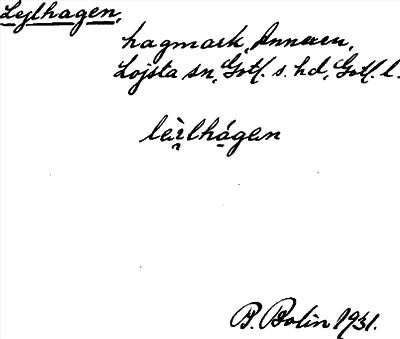 Lejlhagen,
hagmark, Anneren,
Lojsta sn, Gotl. s. hd, Gotl. l.
lèi̯lhágen
B. Bolin 1931.